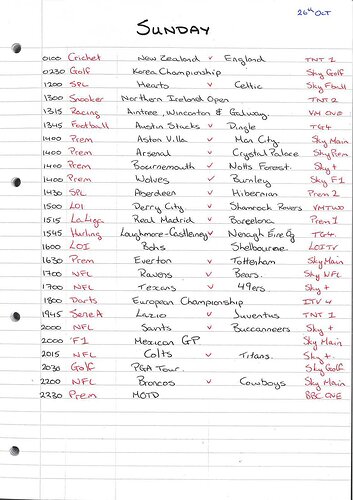 26th Oct
SUNDAY
0100 Cricket New Zealand v England TNT 1
0230 Golf Korea Championship Sky Golf
1200 SPL Hearts v Celtic Sky Fball
1300 Snooker Northern Ireland Open TNT 2
1315 Racing Aintree, Wincanton & Galway VM ONE
1345 Football Austin Stacks v Dingle TG4
1400 Prem Aston Villa v Man City Sky Main
1400 Prem Arsenal v Crystal Palace Sky Prem
1400 Prem Bournemouth v Notts Forest. Sky +
1400 Prem Wolves v Burnley Sky F1
1430 SPL Aberdeen v Hibernian Prem 2
1500 LOI Derry City v Shamrock Rovers VMTWO
1515 La Liga Real Madrid v Barcelona Prem 1
1545 Hurling Loughmore-Castleiney v Nenagh Eire Óg TG4
1600 LOI Bohs v Shelbourne LOITV
1630 Prem Everton v Tottenham Sky Main
1700 NFL Ravens v Bears. Sky NFL
1700 NFL Texans v 49ers. Sky +
1800 Darts European Championship ITV 4
1945 Serie A Lazio v Juventus TNT 1
2000 NFL Saints v Buccaneers Sky +
2000 F1 Mexican GP Sky Main
2015 NFL Colts v Titans. Sky +
2030 Golf PGA Tour. Sky Golf
2200 NFL Broncos v Cowboys Sky Main
2230 Prem MOTD BBC ONE